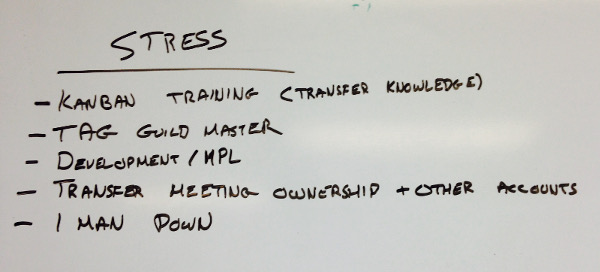 STRESS
- KANBAN TRAINING (TRANSFER KNOWLEDGE)
- TAG GUILD MASTER
- DEVELOPMENT / MPL
- TRANSFER MEETING OWNERSHIP + OTHER ACCOUNTS
- 1 MAN DOWN